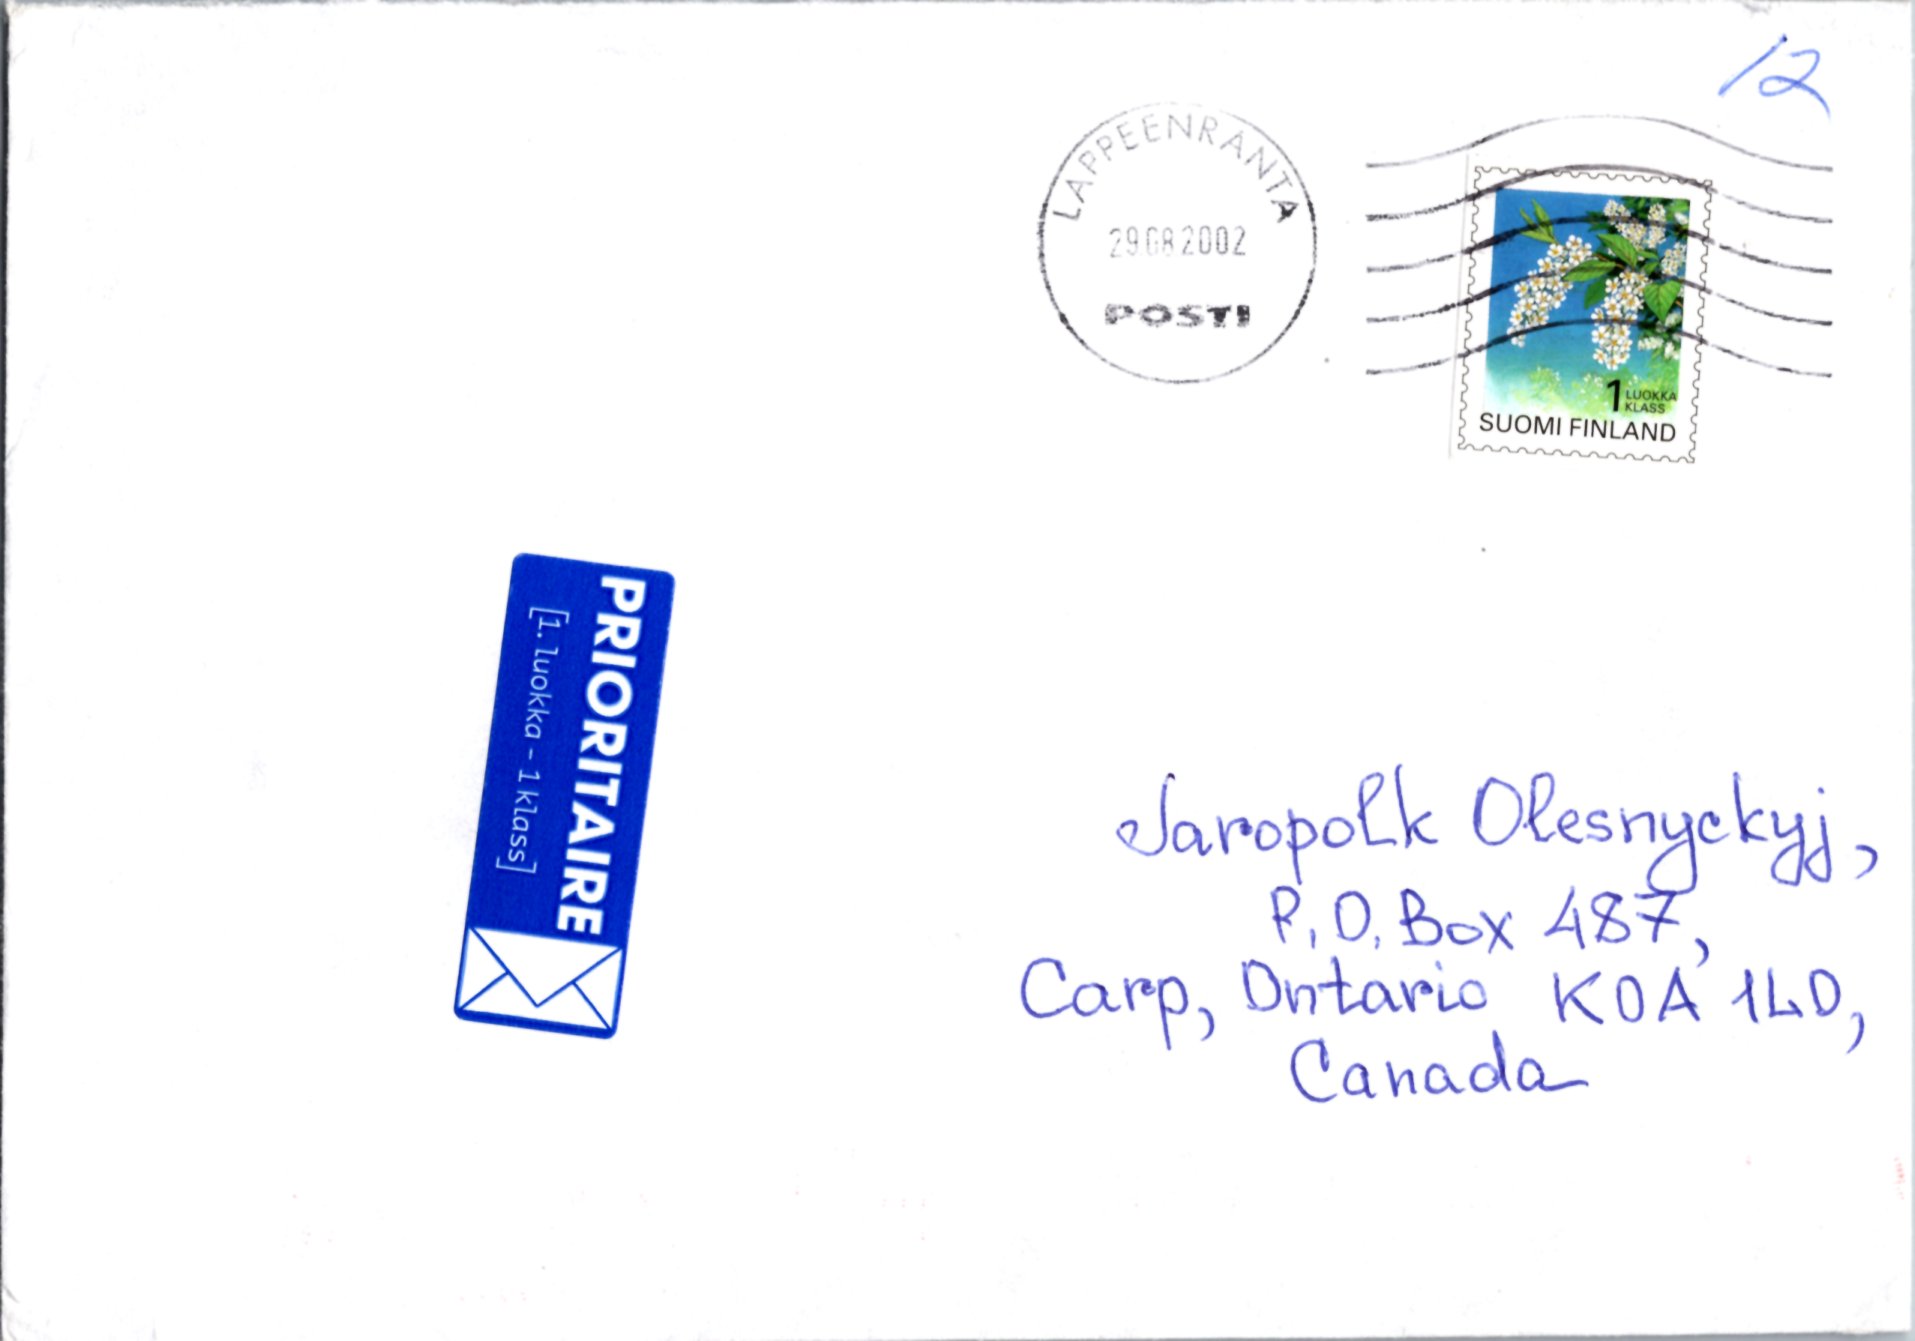 12
LAPPEENRANTA
29.08.2002
POSTI
1 LUOKKA
KLASS
SUOMI FINLAND
PRIORITAIRE
[1. luokka - 1 klass]
Jaropolk Olesnyckyj,
P.O. Box 487,
Carp, Ontario K0A 1L0,
Canada